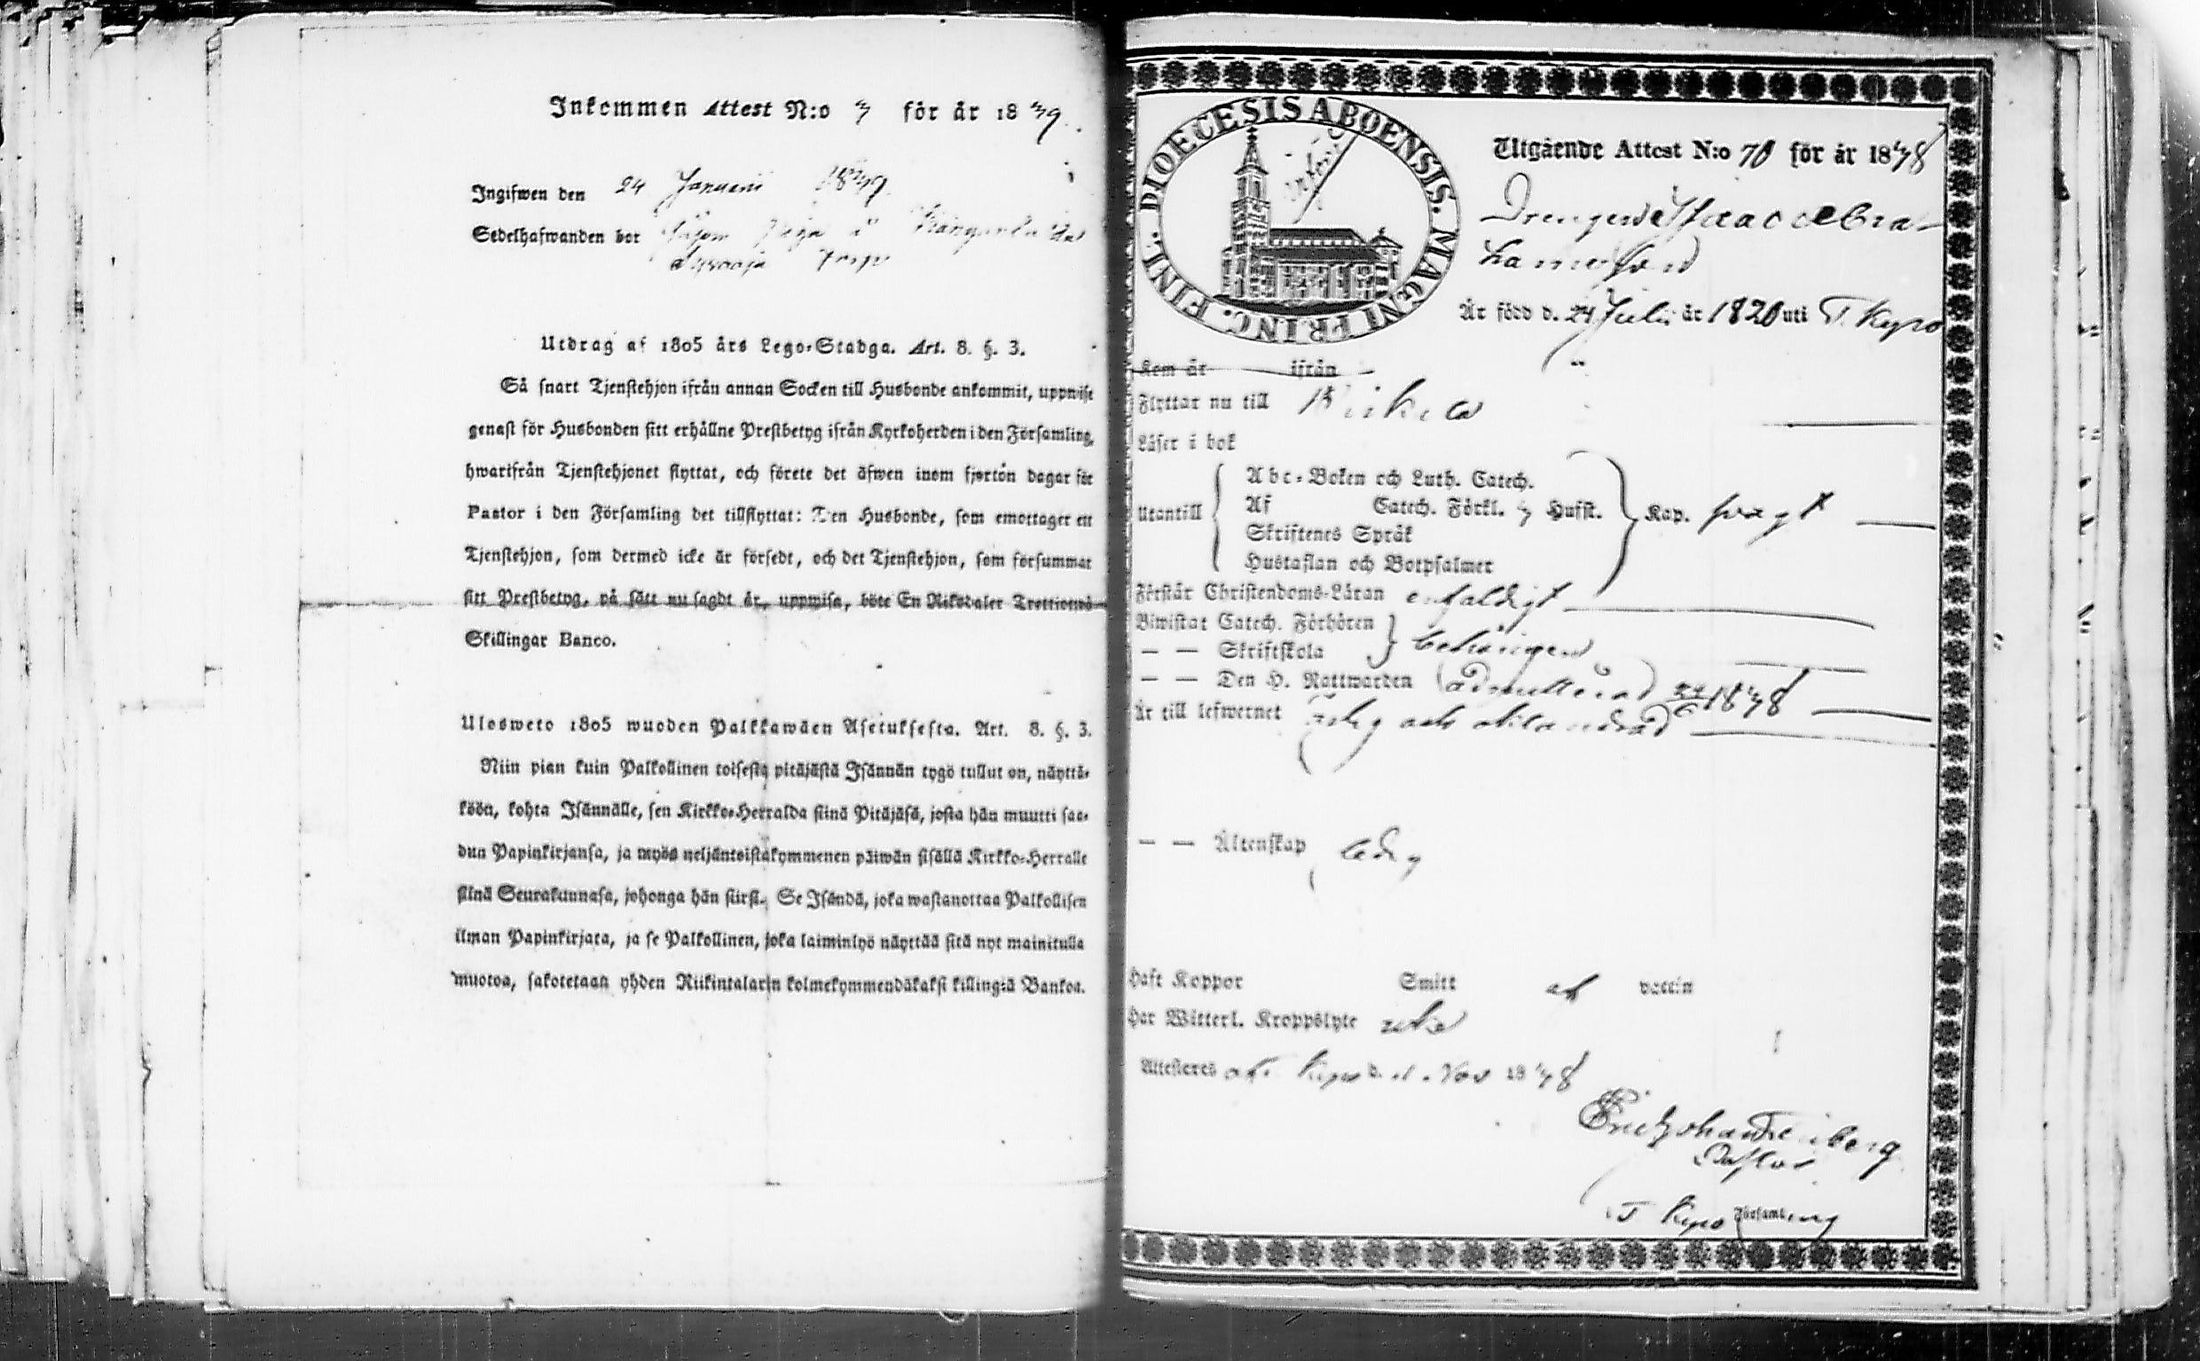 Inkommen Attest N:o för år 18 49.
Ingifwen den 24 Januarii 1849.
Sedelhafwanden bor
torp
Utdrag af 1805 års Lego-Stadga. Art. 8. §. 3.
Så snart Tjenstehjon ifrån annan Socken till Husbonde ankommit, uppwise
genast för Husbonden sitt erhållne Prestbetyg ifrån Kyrkoherden i den Församling,
hwarifrån Tjenstehjonet flyttat, och förete det äfwen inom fjorton dagar för
Pastor i den Församling det tillflyttat: Den Husbonde, som emottager ett
Tjenstehjon, som dermed icke är försedt, och det Tjenstehjon, som försummar
sitt Prestbetyg, på sätt nu sagdt är, uppwisa, böte En Riksdaler Trettiotwå
Skillingar Banco.
Ulosweto 1805 wuoden Palkkawäen Asetuksesta. Art. 8. §. 3.
Niin pian kuin Palkollinen toisesta pitäjästä Isännän tygö tullut on, näyttä-
köön, kohta Isännälle, sen Kirkko-Herralda siinä Pitäjäsä, josta hän muutti saa-
dun Papinkirjansa, ja myös neljäntoistakymmenen päiwän sisällä Kirkko-Herralle
siinä Seurakunnasa, johonga hän siirsi. Se Isändä, joka wastanottaa Palkollisen
ilman Papinkirjata, ja se Palkollinen, joka laiminlyö näyttää sitä nyt mainitulla
muotoa, sakotetaan yhden Riikintalarin kolmekymmendäkaksi killingiä Bankoa.
DIOECESIS ABOENSIS. MAGNI PRINC. FINL.
Utgående Attest N:o 70 för år 1848
Drengen Isaac Abra-
hamsson
Är född d. 24 Julii år 1820 uti T. Kyro
Kom år ifrån
Flyttar nu till
Läser i bok
Utantill
Abc-Boken och Luth. Catech.
Af Catech. Förkl. Hufst.
Skriftenes Språk
Hustaflan och Botpsalmer
Kap. svagt
Förstår Christendoms-Läran enfaldigt
Biwistat Catech. Förhören
— — Skriftskola behörigen
— — Den H. Nattwarden admitterad 1848
Är till lefwernet ärlig och
— — Äktenskap ledig
Haft Koppor Smitt af vaccin
Har Witterl. Kroppslyte icke
Attesteres af T. Kyro d. Nov 1848
Pastor
i T Kyro Församling